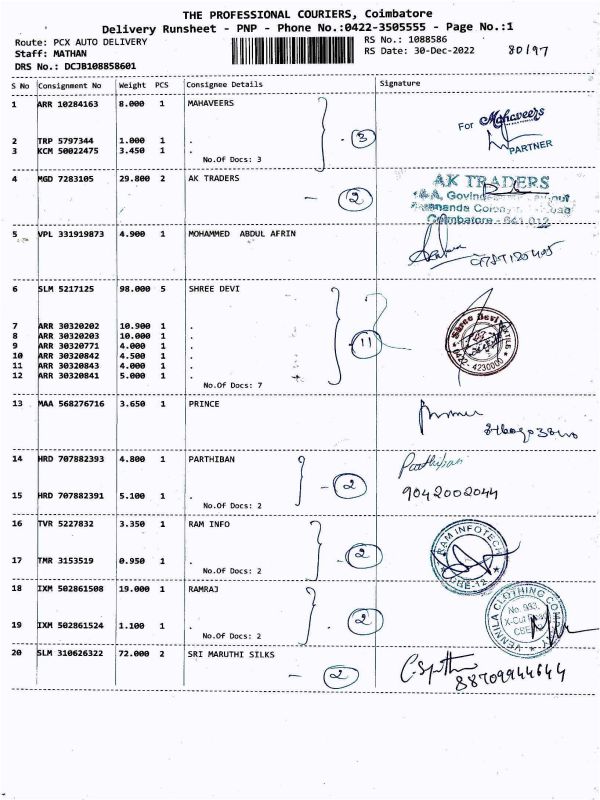 THE PROFESSIONAL COURIERS, Coimbatore
Delivery Runsheet - PNP - Phone No.:0422-3505555 - Page No.:1
Route: PCX AUTO DELIVERY RS No.: 1088586
Staff: MATHAN RS Date: 30-Dec-2022 80/97
DRS No.: DCJB108858601
S No Consignment No Weight PCS Consignee Details Signature
1 ARR 10284163 8.000 1 MAHAVEERS
For Mahaveers
2 TRP 5797344 1.000 1 . 3
3 KCM 50022475 3.450 1 . PARTNER
No.Of Docs: 3
4 MGD 7283105 29.800 2 AK TRADERS - 2 AK TRADERS
Coimbatore - 641 012
5 VPL 331919873 4.900 1 MOHAMMED ABDUL AFRIN
6 SLM 5217125 98.000 5 SHREE DEVI
Shree Devi TEXTILE
0422 - 4230000
7 ARR 30320202 10.900 1 .
8 ARR 30320203 10.000 1 .
9 ARR 30320771 4.000 1 . 11
10 ARR 30320842 4.500 1 .
11 ARR 30320843 4.000 1 .
12 ARR 30320841 5.000 1 .
No.Of Docs: 7
13 MAA 568276716 3.650 1 PRINCE
14 HRD 707882393 4.800 1 PARTHIBAN Parthiban
- 2
15 HRD 707882391 5.100 1 . 9042002044
No.Of Docs: 2
16 TVR 5227832 3.350 1 RAM INFO
RAM INFOTECH
CBE-12
17 TMR 3153519 0.950 1 . - 2
No.Of Docs: 2
18 IXM 502861508 19.000 1 RAMRAJ
VENNILA CLOTHING
No. 933,
X-Cut Road
CBE
19 IXM 502861524 1.100 1 . - 2
No.Of Docs: 2
20 SLM 310626322 72.000 2 SRI MARUTHI SILKS
- 2 88709944644